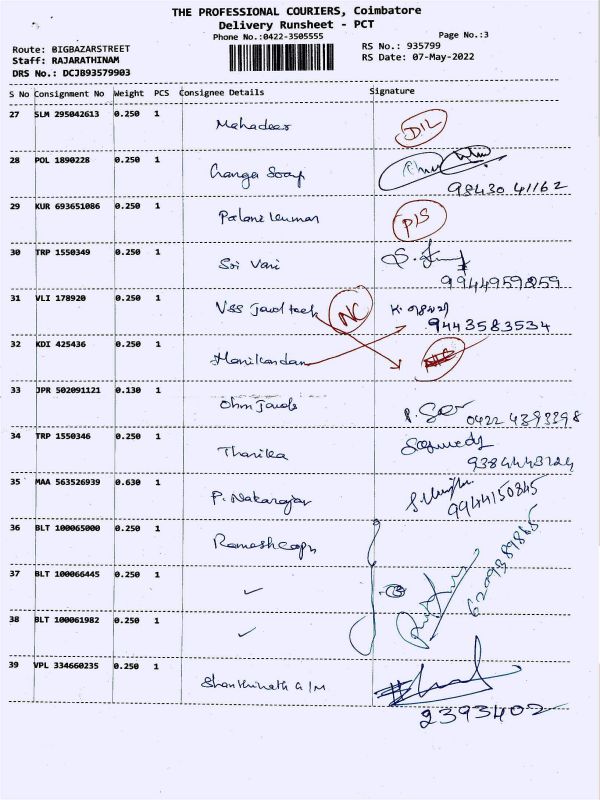 THE PROFESSIONAL COURIERS, Coimbatore
Delivery Runsheet - PCT
Phone No.:0422-3505555 Page No.:3
Route: BIGBAZARSTREET RS No.: 935799
Staff: RAJARATHINAM RS Date: 07-May-2022
DRS No.: DCJB93579903
S No Consignment No Weight PCS Consignee Details Signature
27 SLM 295042613 0.250 1
D/L
28 POL 1890228 0.250 1
98430 41162
29 KUR 693651086 0.250 1 Palani kumar
30 TRP 1550349 0.250 1 Sri Vari
9944959859
31 VLI 178920 0.250 1 NC
9443583534
32 KDI 425436 0.250 1 Manikandan
33 JPR 502091121 0.130 1
0422 4393398
34 TRP 1550346 0.250 1 Tharika
35 MAA 563526939 0.630 1 P. Natarajan
9944150845
36 BLT 100065000 0.250 1
37 BLT 100066445 0.250 1 ✓
38 BLT 100061982 0.250 1 ✓
39 VPL 334660235 0.250 1
2393402